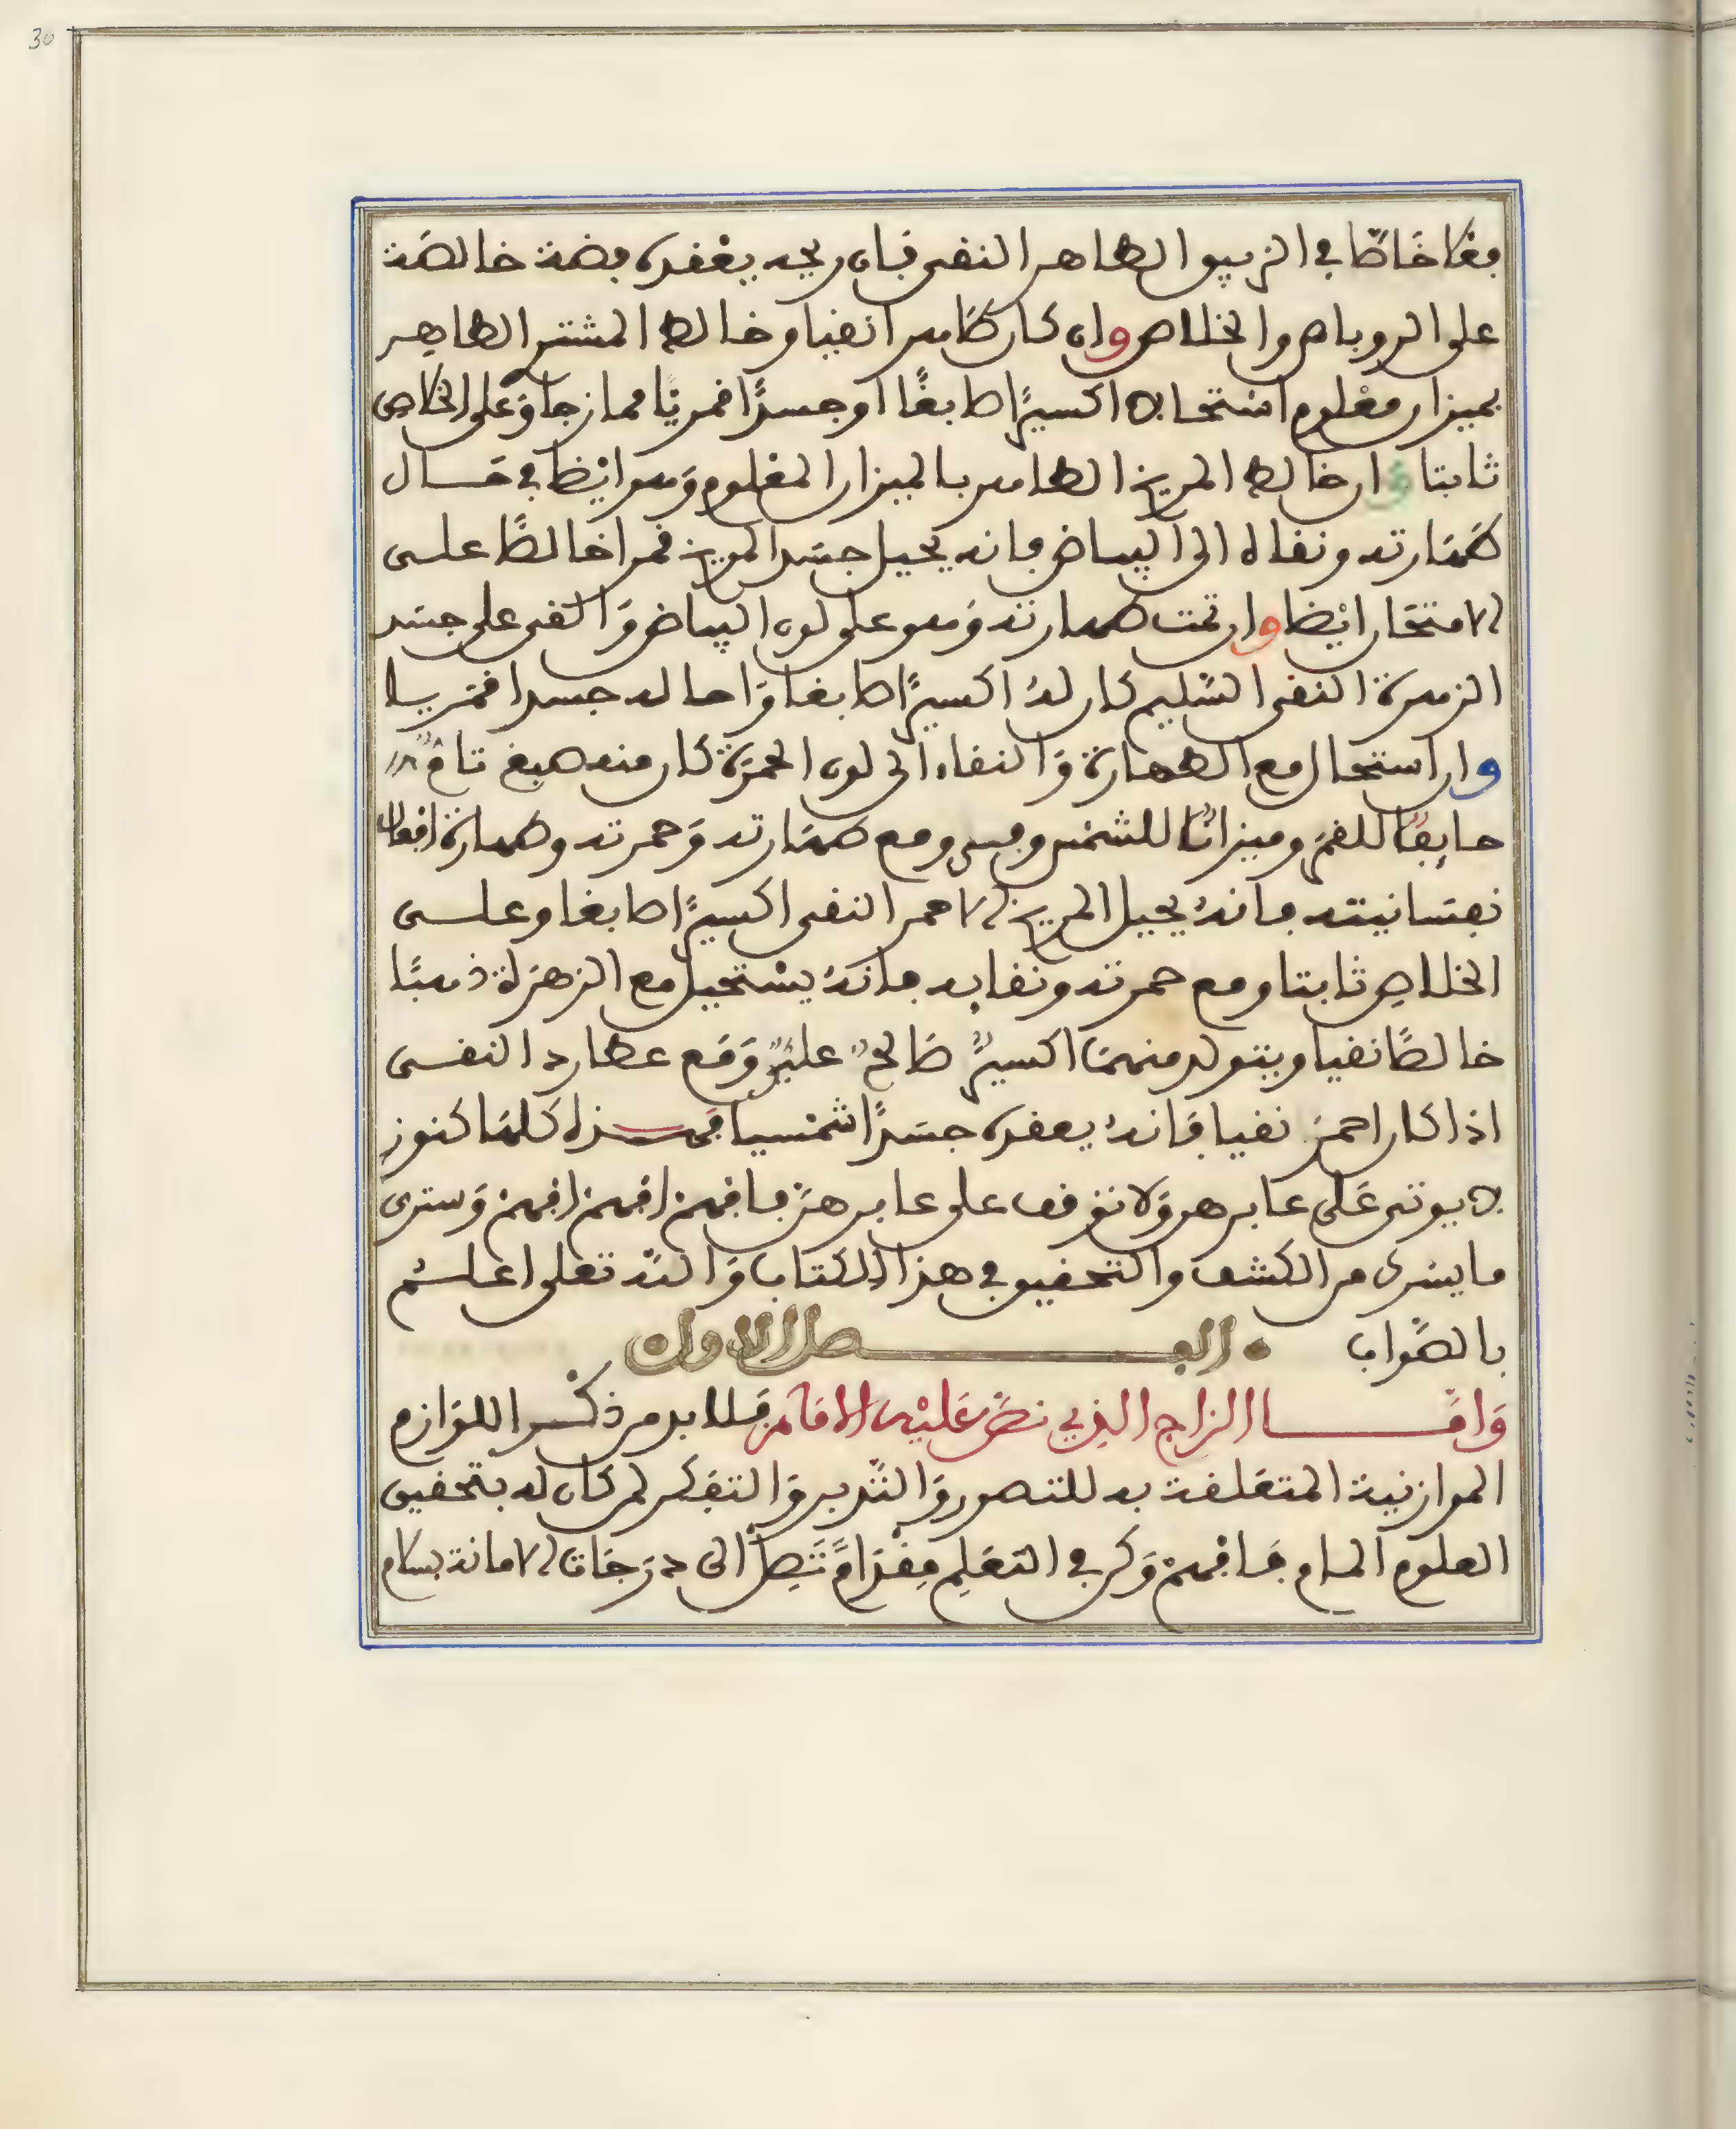 30
فعلا خاصا في الزيبق الطاهر النقي فان ريحه يعقده فضة خالصة
على الروباص والخلاص وان كان طاهرا نقيا وخالط المشتر الطاهر
بميزان معلوم استحال اكسيرًا صابغًا او جسدًا قمريًا ممازجا وعلى الخلاص
ثابتا وان خالط المريخ الطاهر بالميزان المعلوم وهو ايضا في حال
طهارته ونقاه الى البياض فانه يحيل جسد المريخ قمرا خالصًا على
الامتحان ايضا وان تمت طهارته وهو على لون البياض والقي على جسد
الزهرة النقي السليم كان له اكسيرًا صابغا واحاله جسدا قمريا
وان استحال مع الطهارة والنقاء الى لون الحمرة كان منه صبغ تام
صابغا للقمر وميزانًا للشمس ومع طهارته وحمرته وطهارة
نفسانيته فانه يحيل المريخ الاحمر النقي اكسيرًا صابغا وعلى
الخلاص ثابتا ومع حمرته ونقايه فانه يستحيل مع الزهرة ذهبًا
خالصًا نقيا ويتولد منهما اكسيرٌ صالحٌ عليٌ ومع عطارد النقي
اذا كان احمر نقيا فانه يعقده جسدًا شمسيا فهذه كلها كنوز
لا يوتى على عابرها ولا توقف على عابرها فافهم افهم افهم وسترى
ما يسرك من الكشف والتحقيق في هذا الكتاب والله تعلى اعلم
بالصواب الفصل الاول
واما الزاج الذي نص عليه الامام فلا بد من ذكر اللوازم
الموازنية المتعلقة به للتصور والتدبر والتفكر لمن كان له بتحقيق
العلوم المام فافهم وكن في التعلم مقدام تصل الى درجات الامانة بسلام